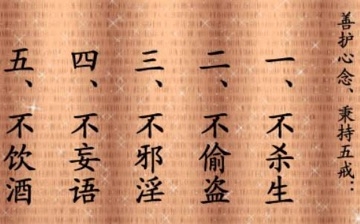 善护心念、秉持五戒、
一、不杀生
二、不偷盗
三、不邪淫
四、不妄语
五、不饮酒